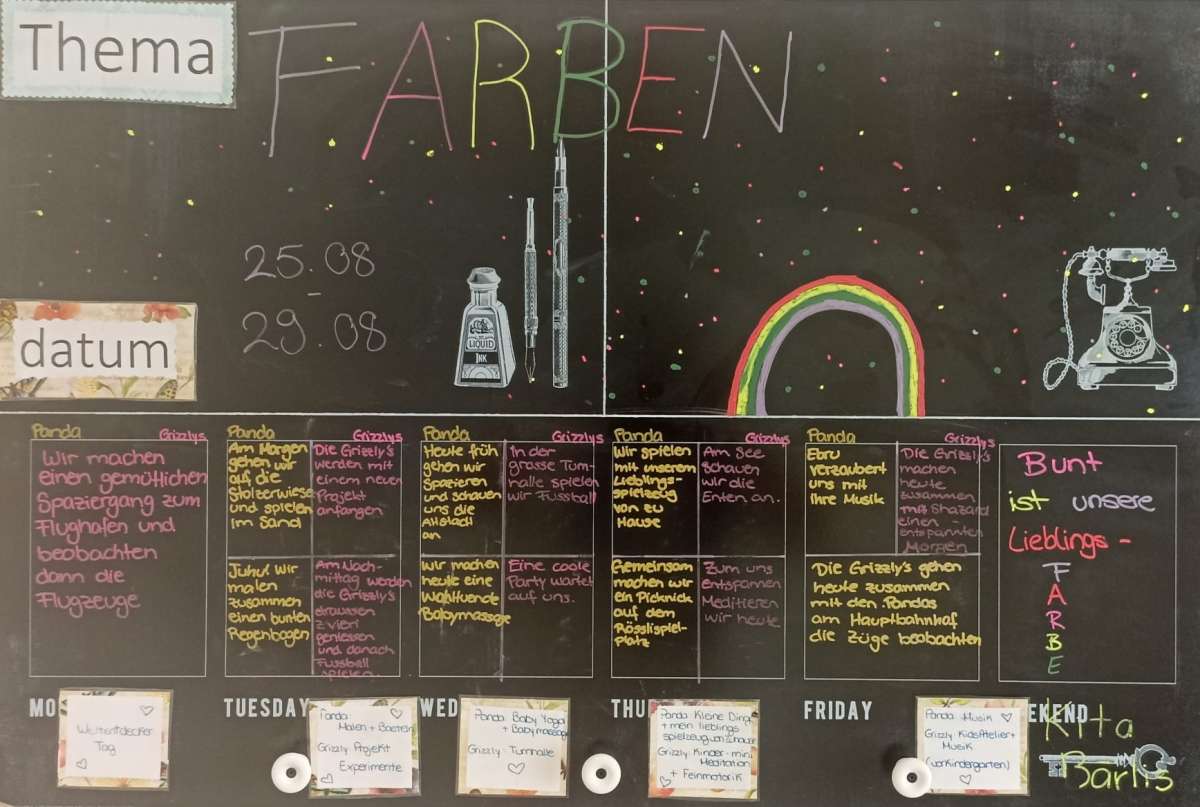 Thema
FARBEN
25.08
-
29.08
datum
LIQUID
INK
Panda
Grizzlys
Wir machen
einen gemütlichen
Spaziergang zum
Flughafen und
beobachten
dann die
Flugzeuge
Panda
Grizzlys
Am Morgen
gehen wir
auf die
Stolzerwiese
und spielen
im Sand
Die Grizzly's
werden mit
einem neuen
Projekt
anfangen
Juhu! Wir
malen
zusammen
einen bunten
Regenbogen
Am Nach-
mittag werden
die Grizzly's
draussen
Zvieri
geniessen
und danach
Fussball
spielen.
Panda
Grizzlys
Heute früh
gehen wir
Spazieren
und schauen
uns die
Altstadt
an
In der
grosse Turn-
halle spielen
wir Fussball
Wir machen
heute eine
Wahltuende
Babymassage
Eine coole
Party wartet
auf uns.
Panda
Grizzlys
Wir spielen
mit unserem
Lieblings-
spielzeug
von zu
Hause
Am See
schauen
wir die
Enten an.
Gemeinsam
machen wir
ein Picknick
auf dem
Rösslispiel-
Platz
Zum uns
entspannen
Meditieren
wir heute
Panda
Grizzlys
Ebru
verzaubert
uns mit
Ihre Musik
Die Grizzly's
machen
heute
zusammen
mit Shazard
einen
entspannten
Morgen
Die Grizzly's gehen
heute zusammen
mit den Pandas
am Hauptbahnhof
die Züge beobachten
Bunt
ist unsere
Lieblings-
F
A
R
B
E
MO
TUESDAY
WED
THU
FRIDAY
EKEND
Weltentdecker
Tag
Panda
Malen + Basteln
Grizzly Projekt
Experimente
Panda Baby Yoga
+ Babymassage
Grizzly Turnhalle
Panda Kleine Ding
+ mein lieblings
spielzeug von Zuhause
Grizzly Kinder-mini
Meditation
+ Feinmotorik
Panda Musik
Grizzly KidsAtelier+
Musik
(vorKindergarten)
Kita
Barlis